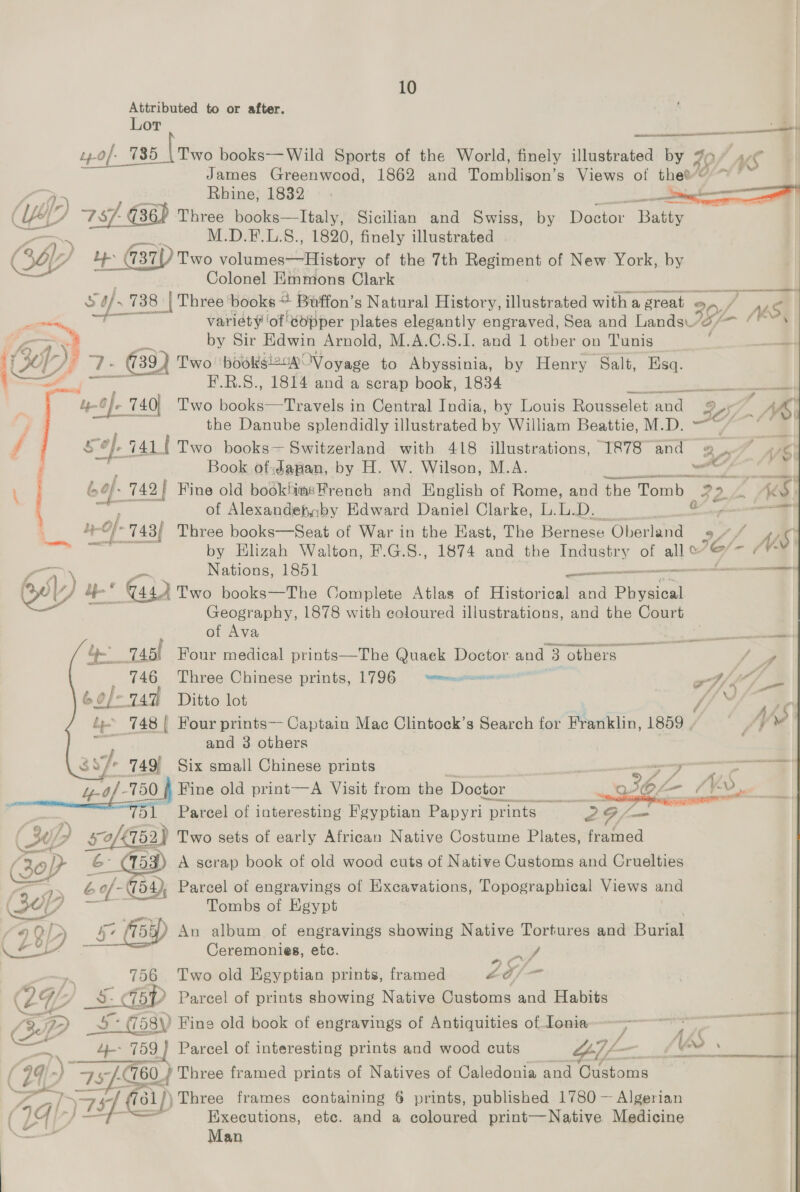 10
Attributed to or after.
LOT
735 Two books—Wild Sports of the World, finely illustrated by
James Greenwood, 1862 and Tomblison's Views of the
Rhine, 1832
736 Three books—Italy, Sicilian and Swiss, by Doctor Batty
M.D.F.L.S., 1820, finely illustrated
737 Two volumes—History of the 7th Regiment of New York, by
Colonel Emmons Clark
738 Three books - Buffon's Natural History, illustrated with a great
variety of copper plates elegantly engraved, Sea and Lands
by Sir Edwin Arnold, M.A.C.S.I. and 1 other on Tunis
739 Two books—A Voyage to Abyssinia, by Henry Salt, Esq.
F.R.S., 1814 and a scrap book, 1834
740 Two books—Travels in Central India, by Louis Rousselet and
the Danube splendidly illustrated by William Beattie, M.D.
741 Two books—Switzerland with 418 illustrations, 1878 and
Book of Japan, by H. W. Wilson, M.A.
742 Fine old book in French and English of Rome, and the Tomb
of Alexander, by Edward Daniel Clarke, L.L.D.
743 Three books—Seat of War in the East, The Bernese Oberland
by Elizah Walton, F.G.S., 1874 and the Industry of all
Nations, 1851
744 Two books—The Complete Atlas of Historical and Physical
Geography, 1878 with coloured illustrations, and the Court
of Ava
745 Four medical prints—The Quack Doctor and 3 others
746 Three Chinese prints, 1796
747 Ditto lot
748 Four prints—Captain Mac Clintock's Search for Franklin, 1859
and 3 others
749 Six small Chinese prints
750 Fine old print—A Visit from the Doctor
751 Parcel of interesting Egyptian Papyri prints 29/-
752 Two sets of early African Native Costume Plates, framed
753 A scrap book of old wood cuts of Native Customs and Cruelties
754 Parcel of engravings of Excavations, Topographical Views and
Tombs of Egypt
755 An album of engravings showing Native Tortures and Burial
Ceremonies, etc.
756 Two old Egyptian prints, framed
757 Parcel of prints showing Native Customs and Habits
758 Fine old book of engravings of Antiquities of Ionia
759 Parcel of interesting prints and wood cuts
760 Three framed prints of Natives of Caledonia and Customs
761 Three frames containing 6 prints, published 1780 — Algerian
Executions, etc. and a coloured print—Native Medicine
Man